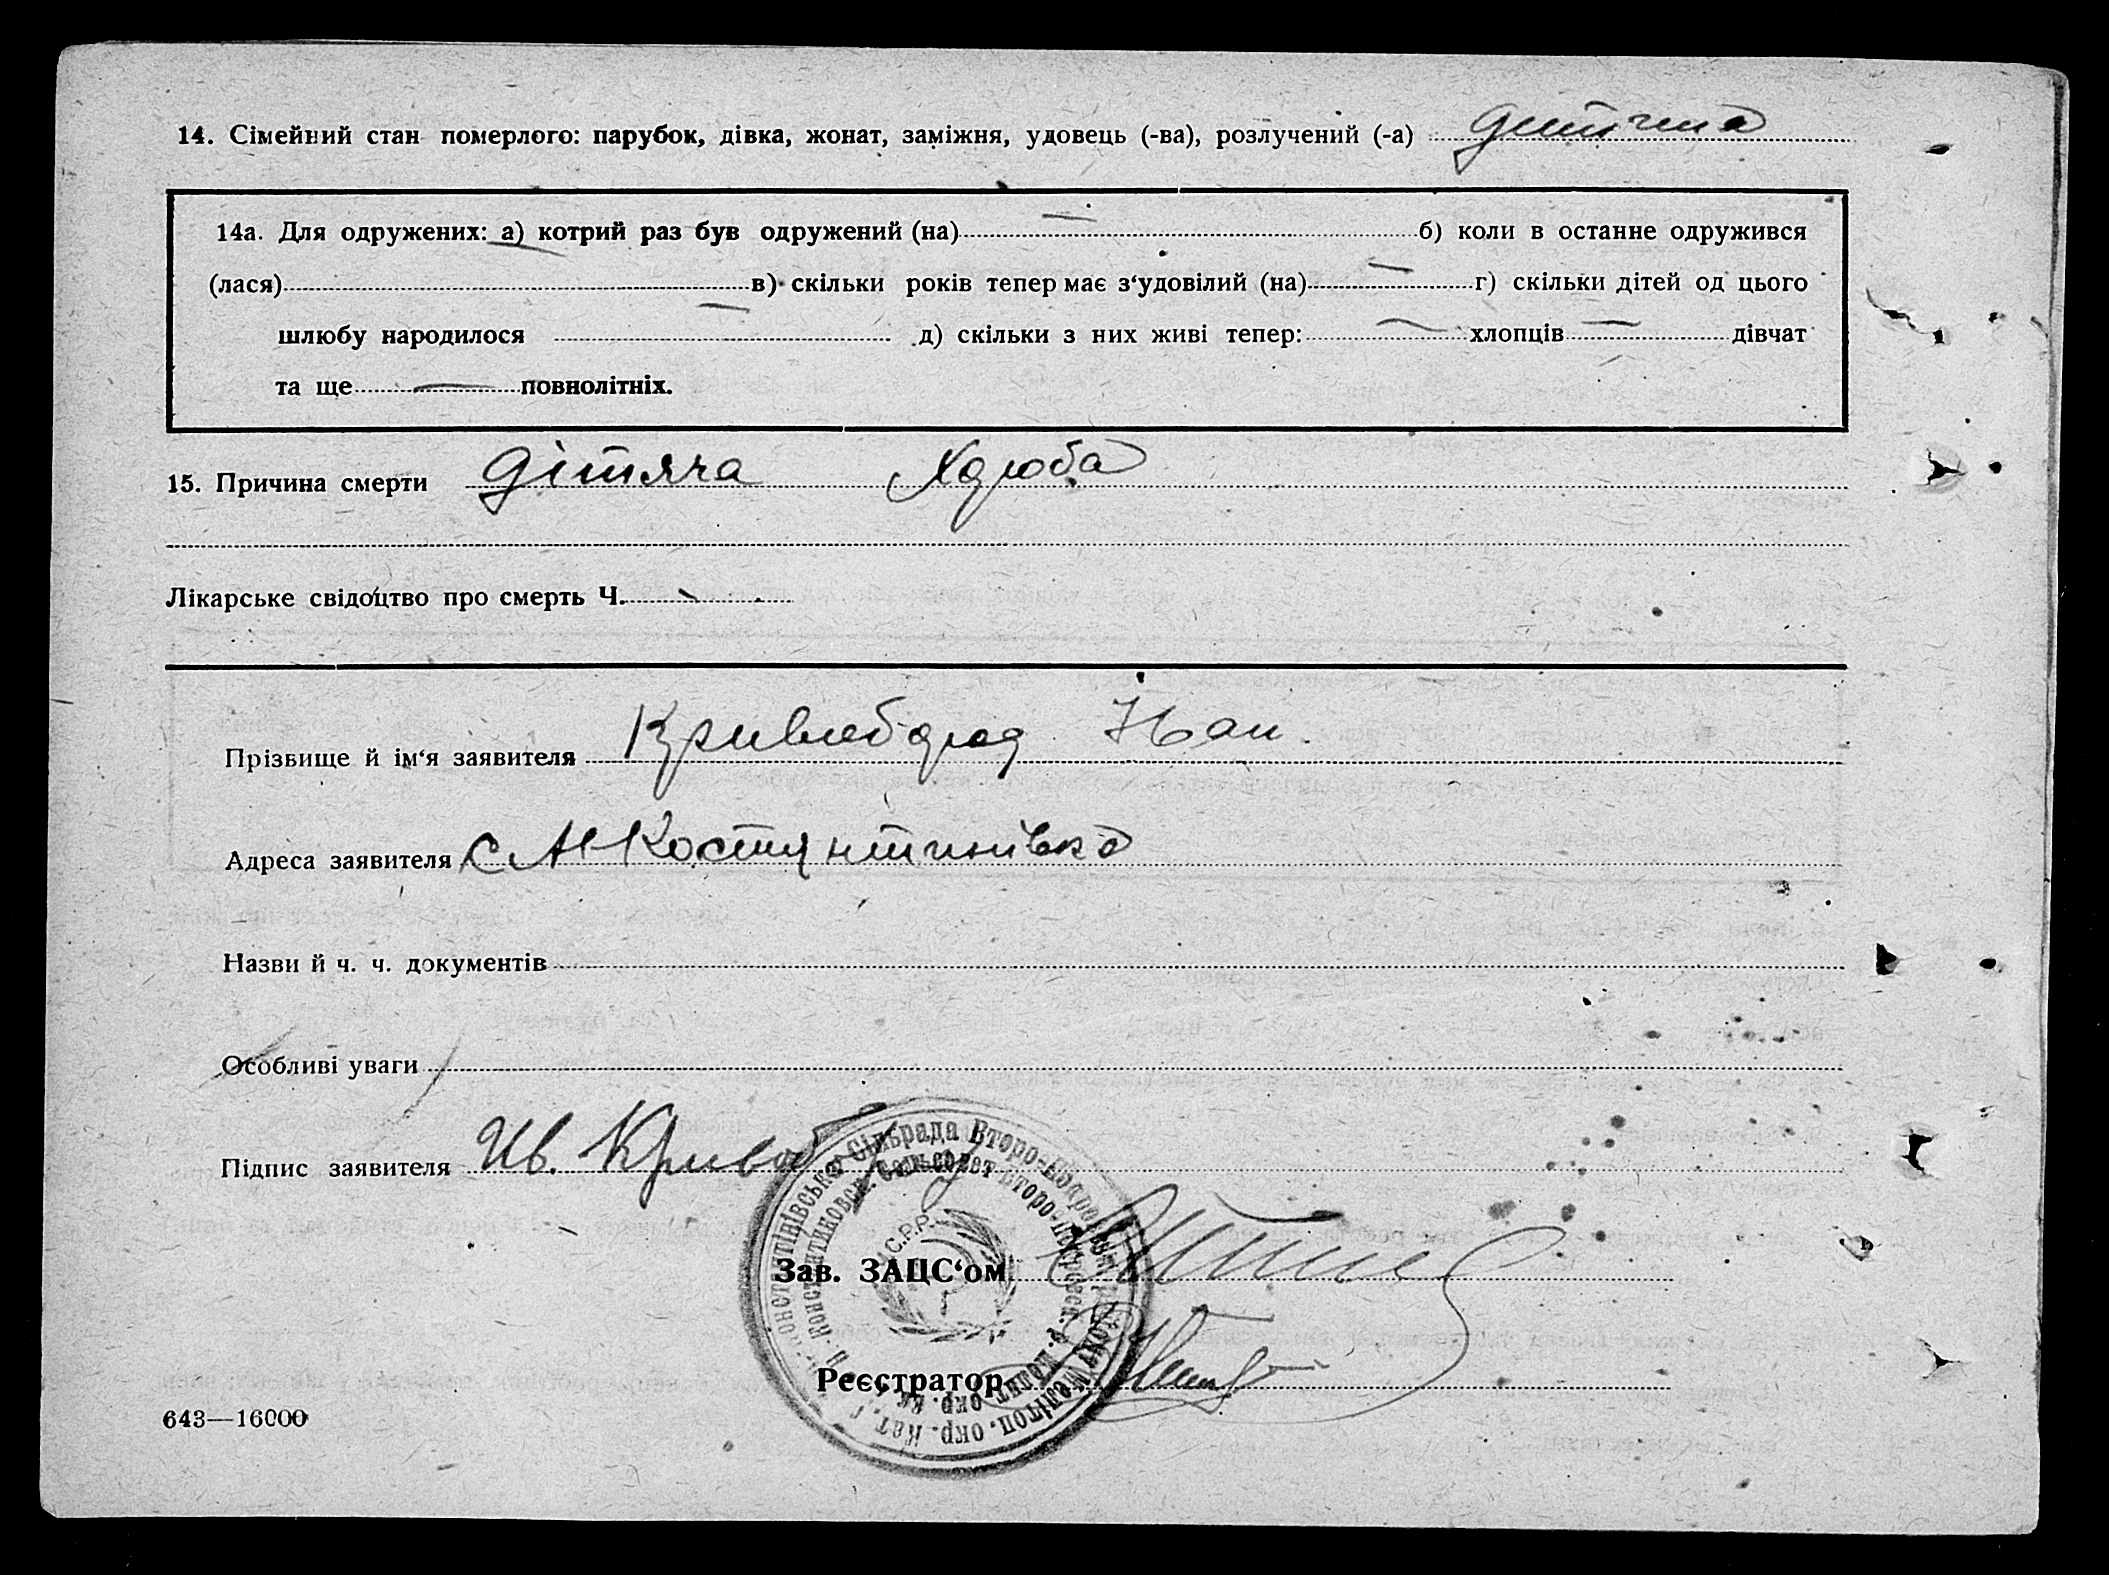 14. Сімейний стан померлого: парубок, дівка, жонат, заміжня, удовець (-ва), розлучений (-а) дитина
14а. Для одружених: а) котрий раз був одружений (на) — б) коли в останне одружився
(лася) в) скільки років тепер має з‘удовілий (на) — г) скільки дітей од цього
шлюбу народилося — д) скільки з них живі тепер: — хлопців — дівчат
та ще — повнолітніх.
15. Причина смерти дітяча Хороба
Лікарське свідоцтво про смерть Ч.
Прізвище й ім‘я заявителя Іван
Адреса заявителя с Костянтинівка
Назви й ч. ч. документів
Особливі уваги
Підпис заявителя Ив.
Сільрада Второ-
Сельсовет Второ-
С.Р.Р.
Зав. ЗАЦС‘ом
Реєстратор
Мелітоп. окр.
643—16000